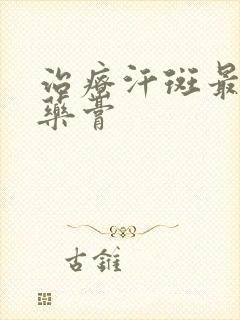 治療汗斑最
藥膏
古錐